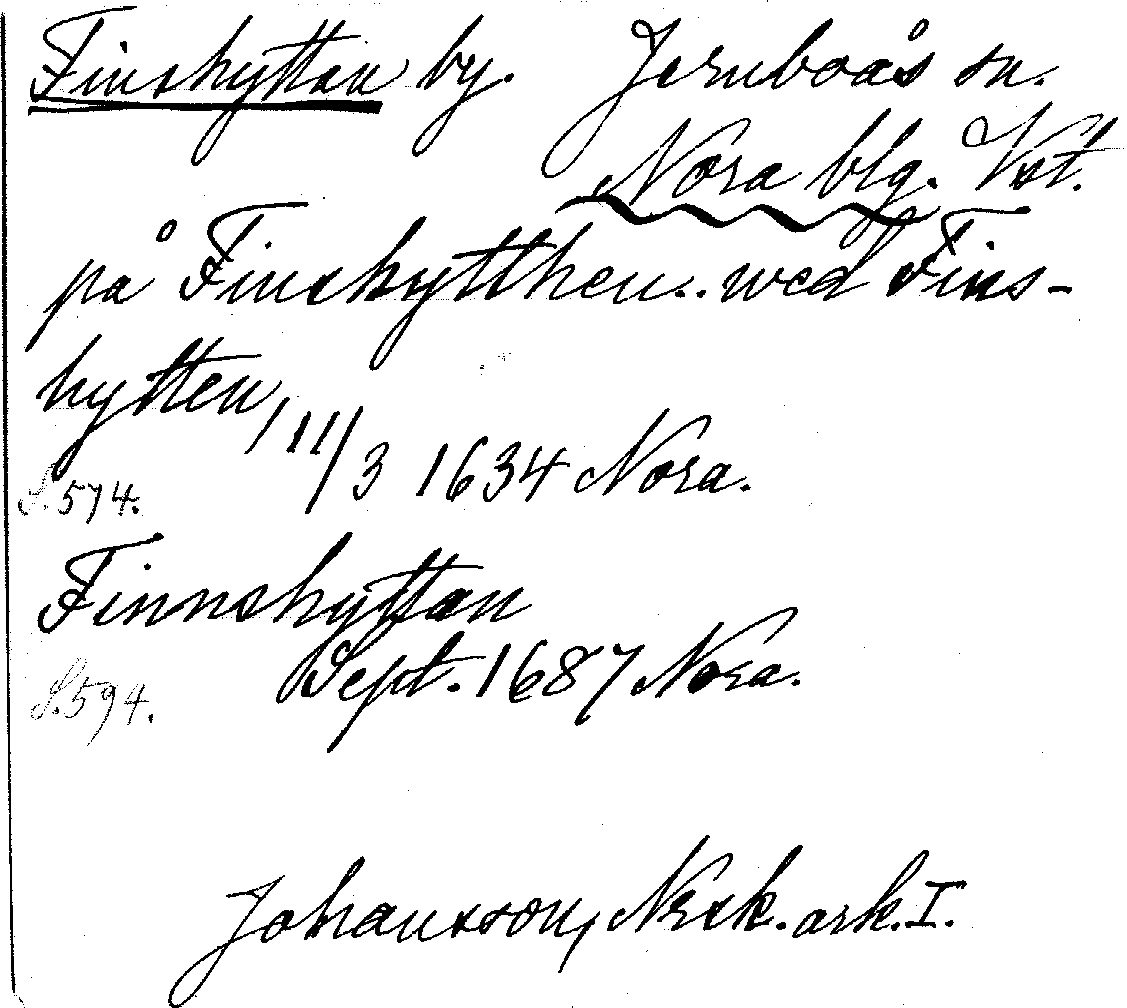 Finshyttan by. Jernboås sn.
Nora blg. Vst.
på Finshytthen.. wed Fins-
hytten
11/3 1634 Nora.
S. 574.
Finnshyttan
Sept. 1687 Nora.
S. 594.
Johansson, Nerk. ark. I.